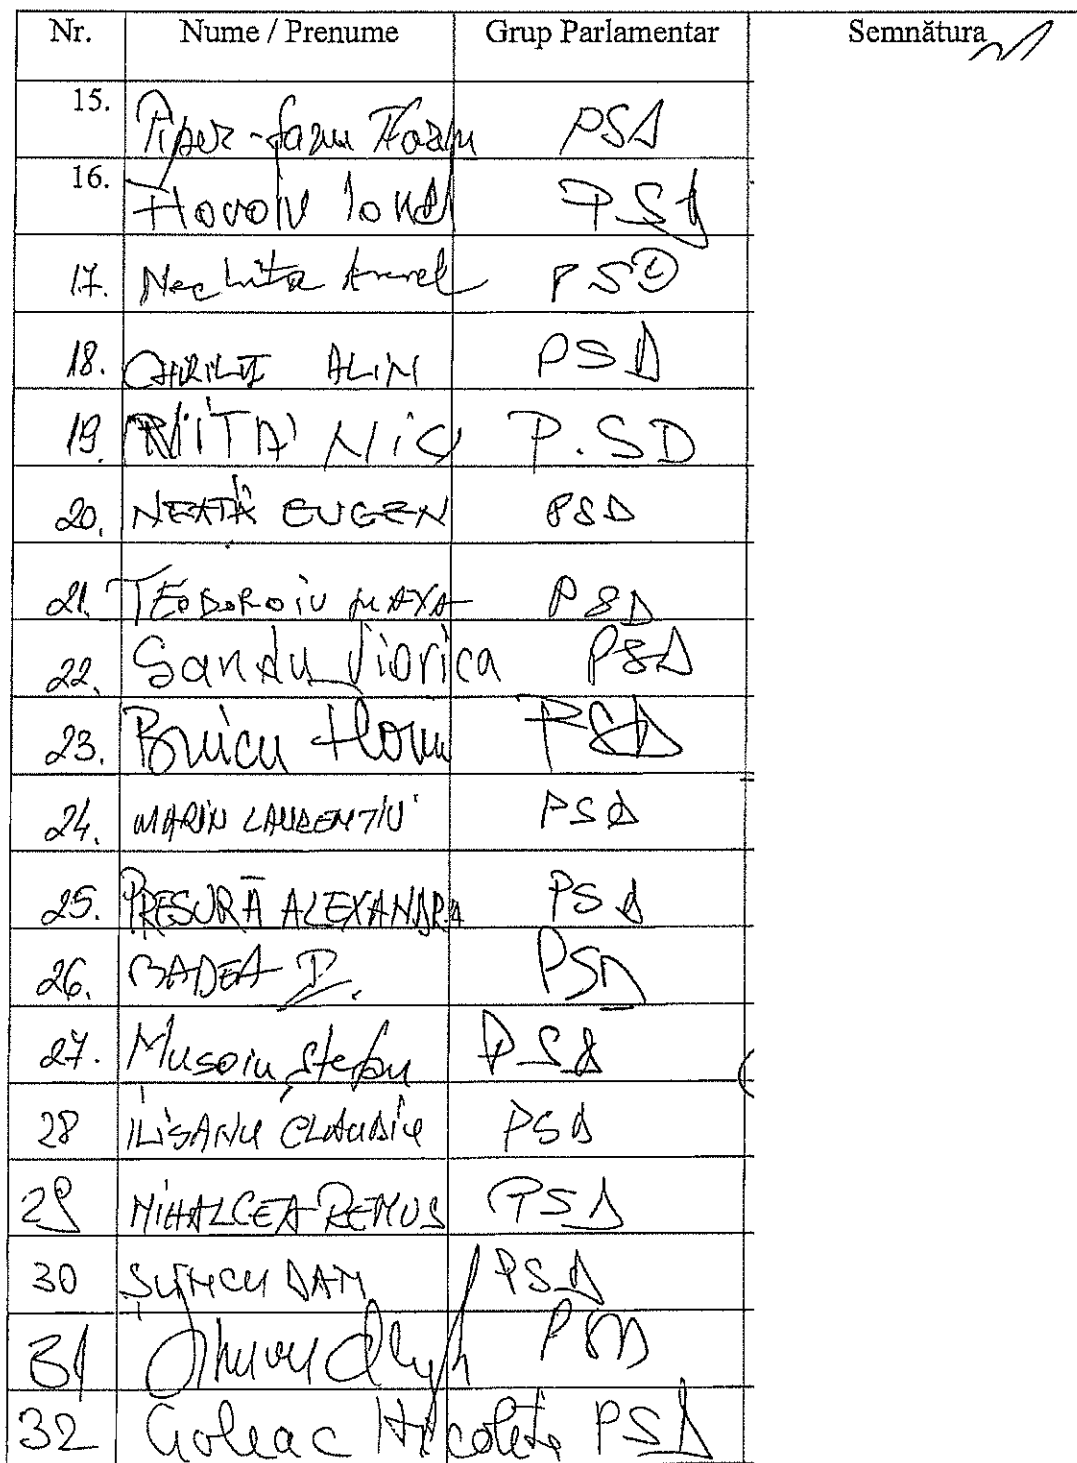 Nr. Nume / Prenume Grup Parlamentar Semnătura
15. Piper-Savu Florin PSD
16. Hovoiu Ionel PSD
17. Nechita Aurel PSD
18. CHIRILĂ ALIN PSD
19. NIȚĂ NIC P.SD
20. NEAȚĂ EUGEN PSD
21. TEODOROIU MAXA PSD
22. Sandu Viorica PSD
23. Buicu Florin PSD
24. MARIN LAURENTIU PSD
25. PRESURĂ ALEXANDRA PSD
26. BADEA PSD
27. Musoiu Stefan PSD
28 ILISANU CLAUDIU PSD
29 MIHALCEA REMUS PSD
30 ȘLINCU DAN PSD
31 PSD
32 Goleac Nicoleta PSD